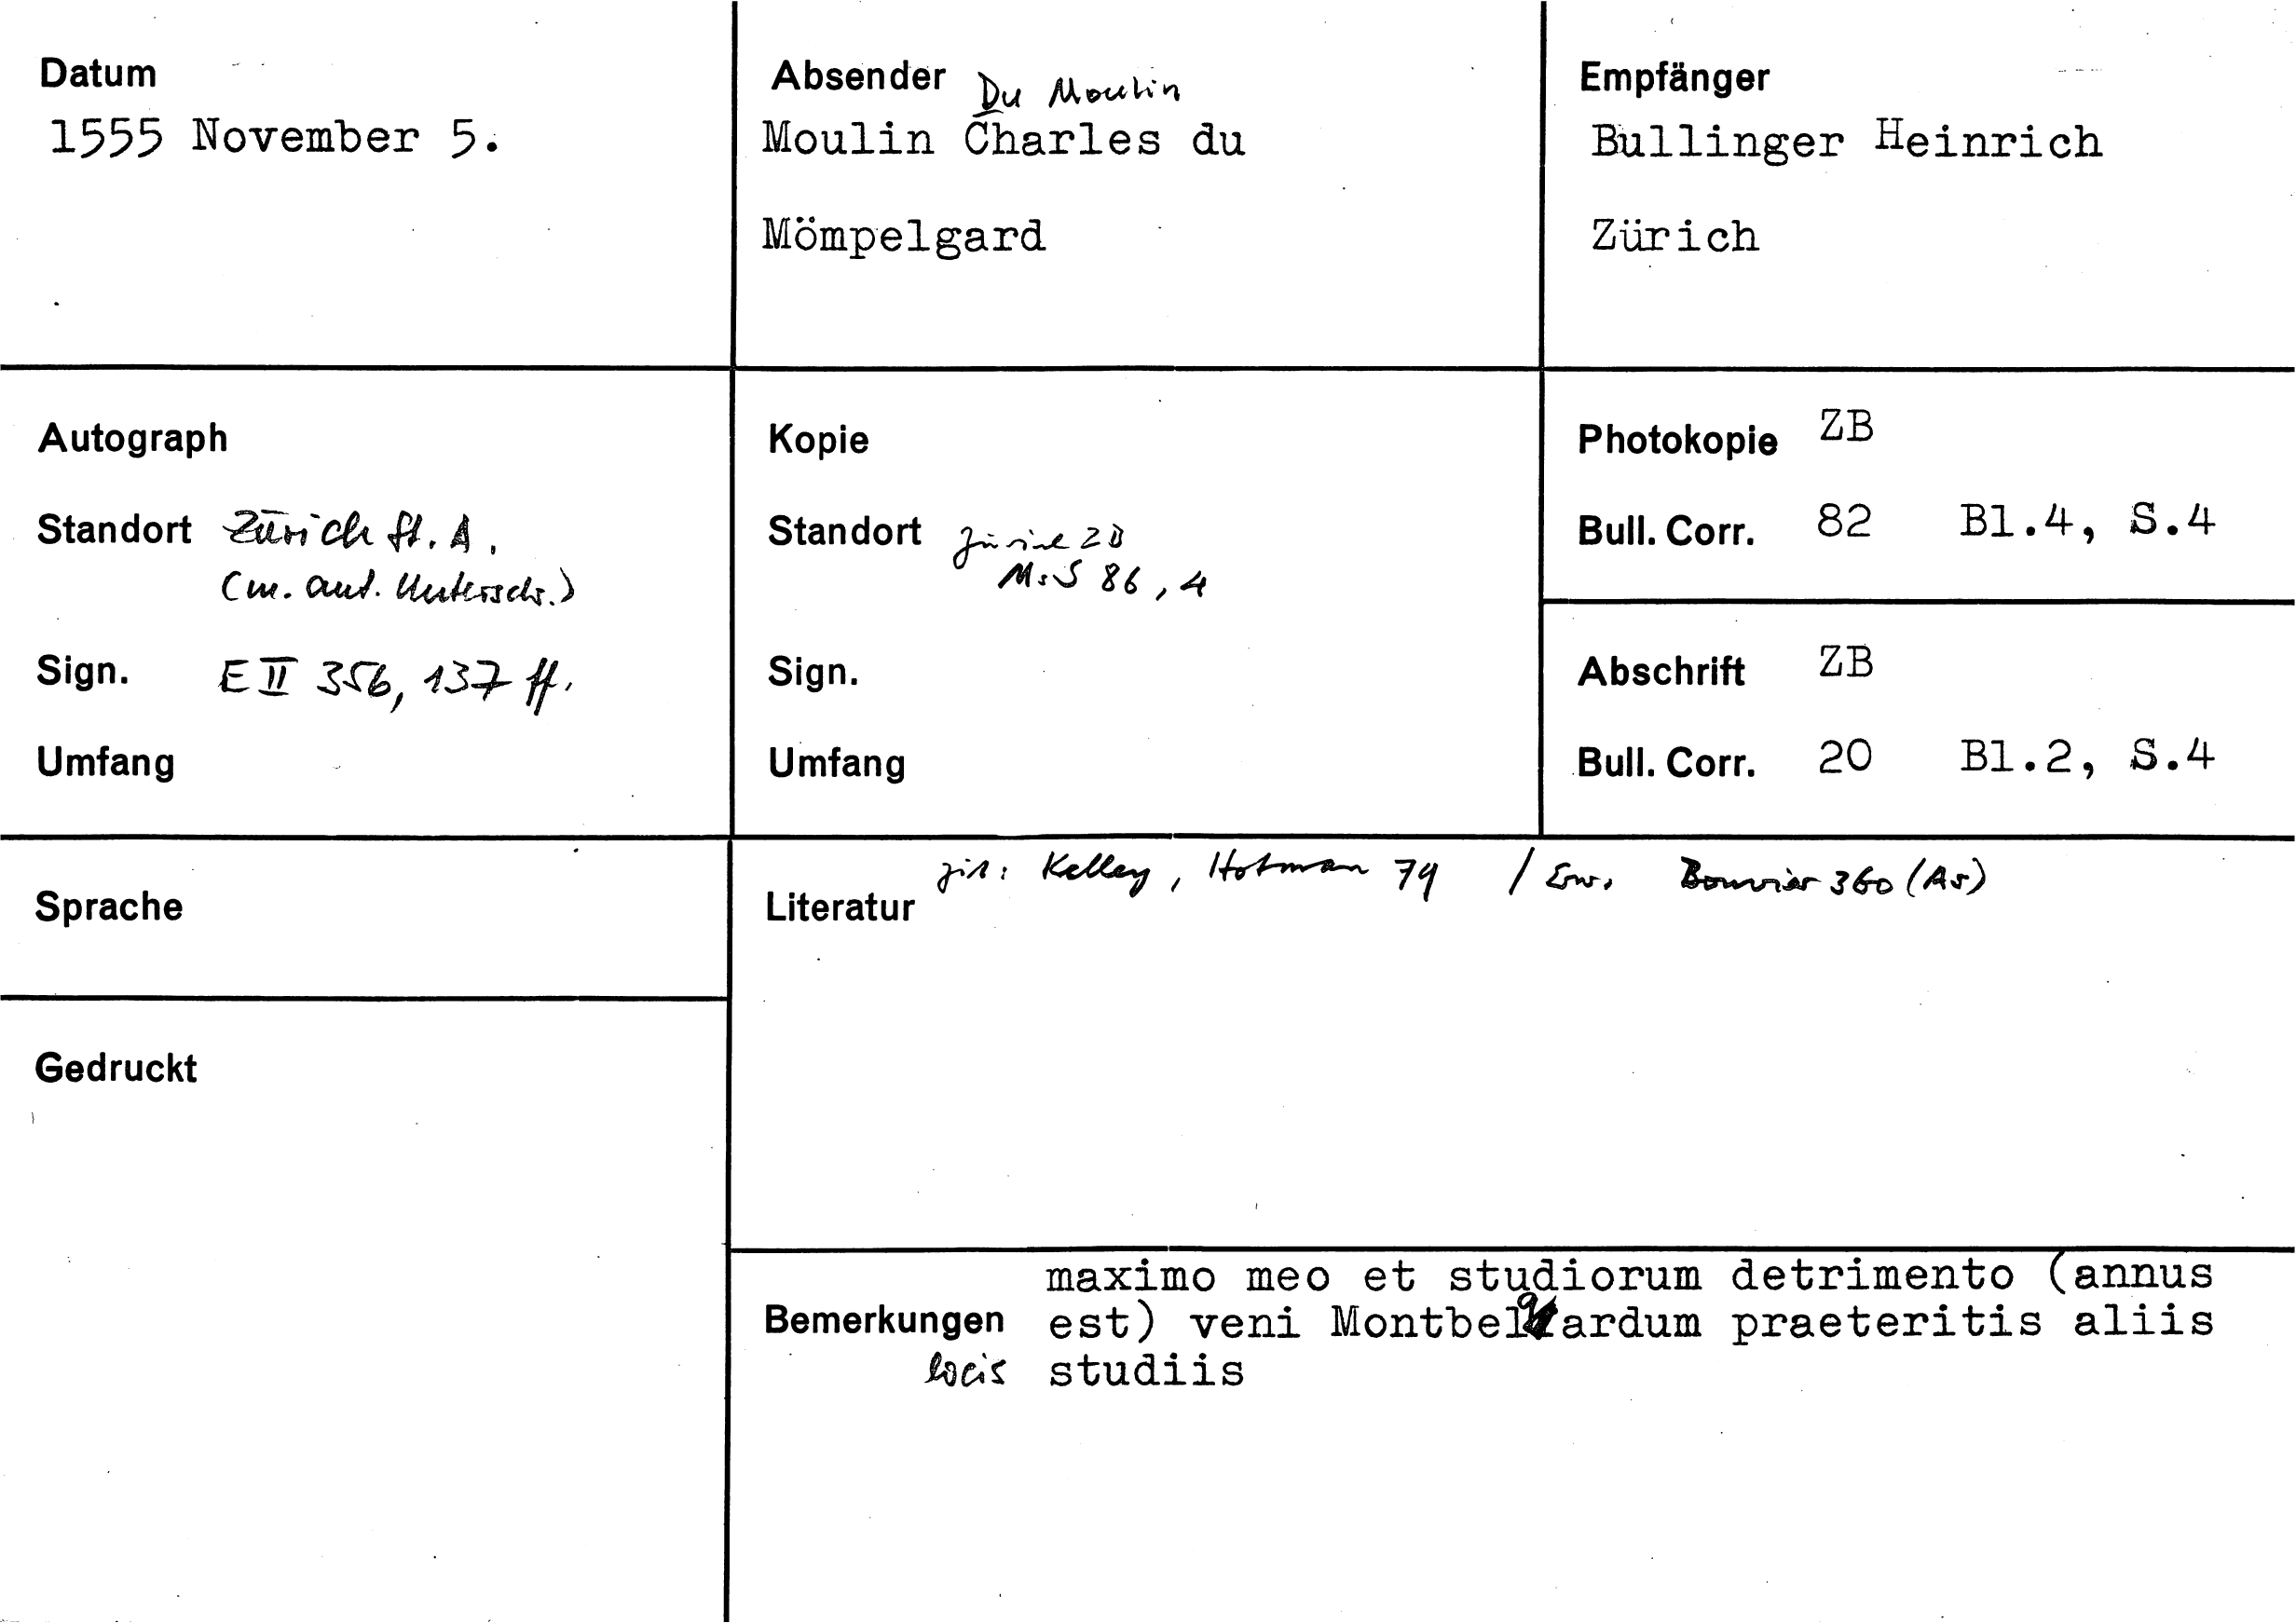 Datum
1555 November 5.
Absender Du Moulin
Moulin Charles du
Mömpelgard
Empfänger
Bullinger Heinrich
Zürich
Autograph
Standort Zürich St. A.
(m. aut. Unterschr.)
Sign. E II 356, 137 ff.
Umfang
Kopie
Standort Zürich ZB
Ms S 86, 4
Sign.
Umfang
Photokopie ZB
Bull. Corr. 82 Bl.4, S.4
Abschrift ZB
Bull. Corr. 20 Bl.2, S.4
Sprache
Gedruckt
zit: Kelley, Hotman 79 / Erw. Bouvier 360 (As)
Literatur
maximo meo et studiorum detrimento (annus
Bemerkungen est) veni Montbelgardum praeteritis aliis
locis studiis